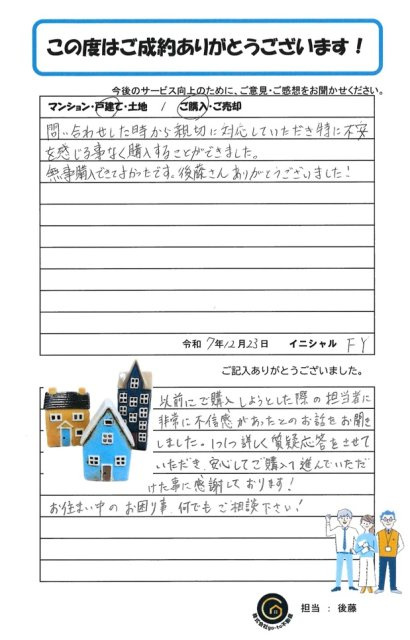 この度はご成約ありがとうございます！
今後のサービス向上のために、ご意見・ご感想をお聞かせください。
マンション・戸建て・土地 / ご購入・ご売却
問い合わせした時から親切に対応していただき特に不安
を感じる事なく購入することができました。
無事購入できてよかったです。後藤さんありがとうございました！
令和 7年12月23日 イニシャル FY
ご記入ありがとうございました。
以前にご購入しようとした際の担当者に
非常に不信感があったとのお話をお聞き
しました。1つ1つ詳しく質疑応答をさせて
いただき、安心してご購入へ進んでいただ
けた事に感謝しております！
お住まい中のお困り事、何でもご相談下さい！
株式会社go-to不動産
担当 ： 後藤